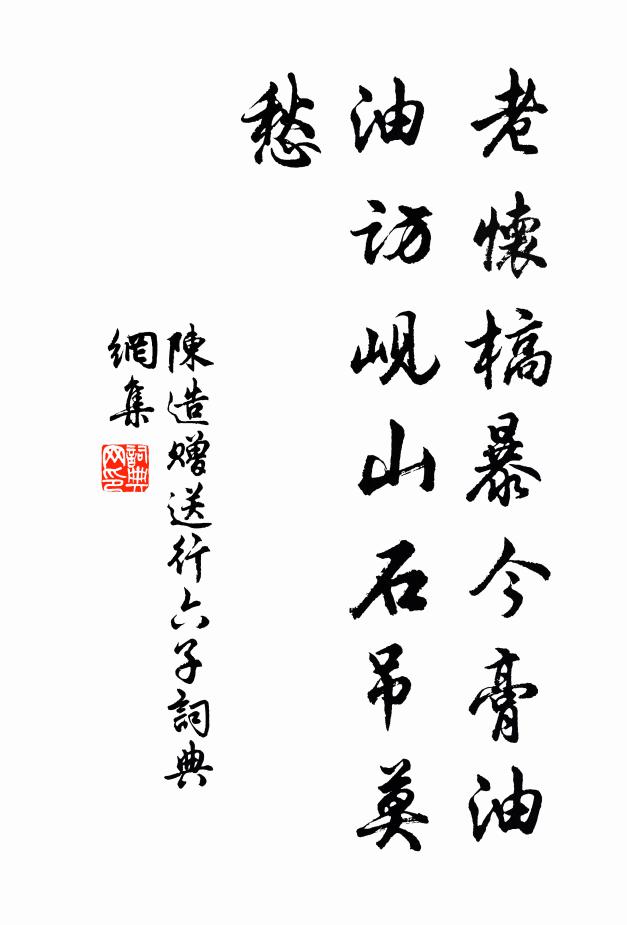 老懷槁暴今膏油
油訪峴山石吊莫
愁
陳造贈送行六子詞典
網集
詞典
网印